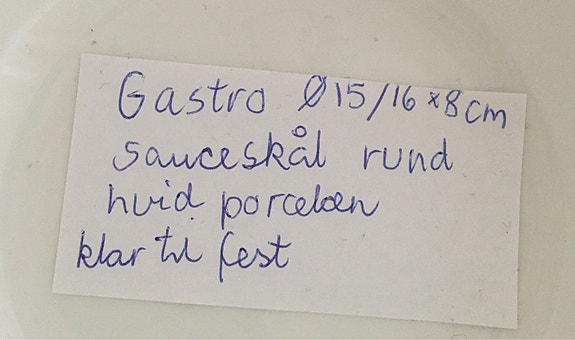 Gastro Ø15/16×8cm
sauceskål rund
hvid porcelæn
klar til fest